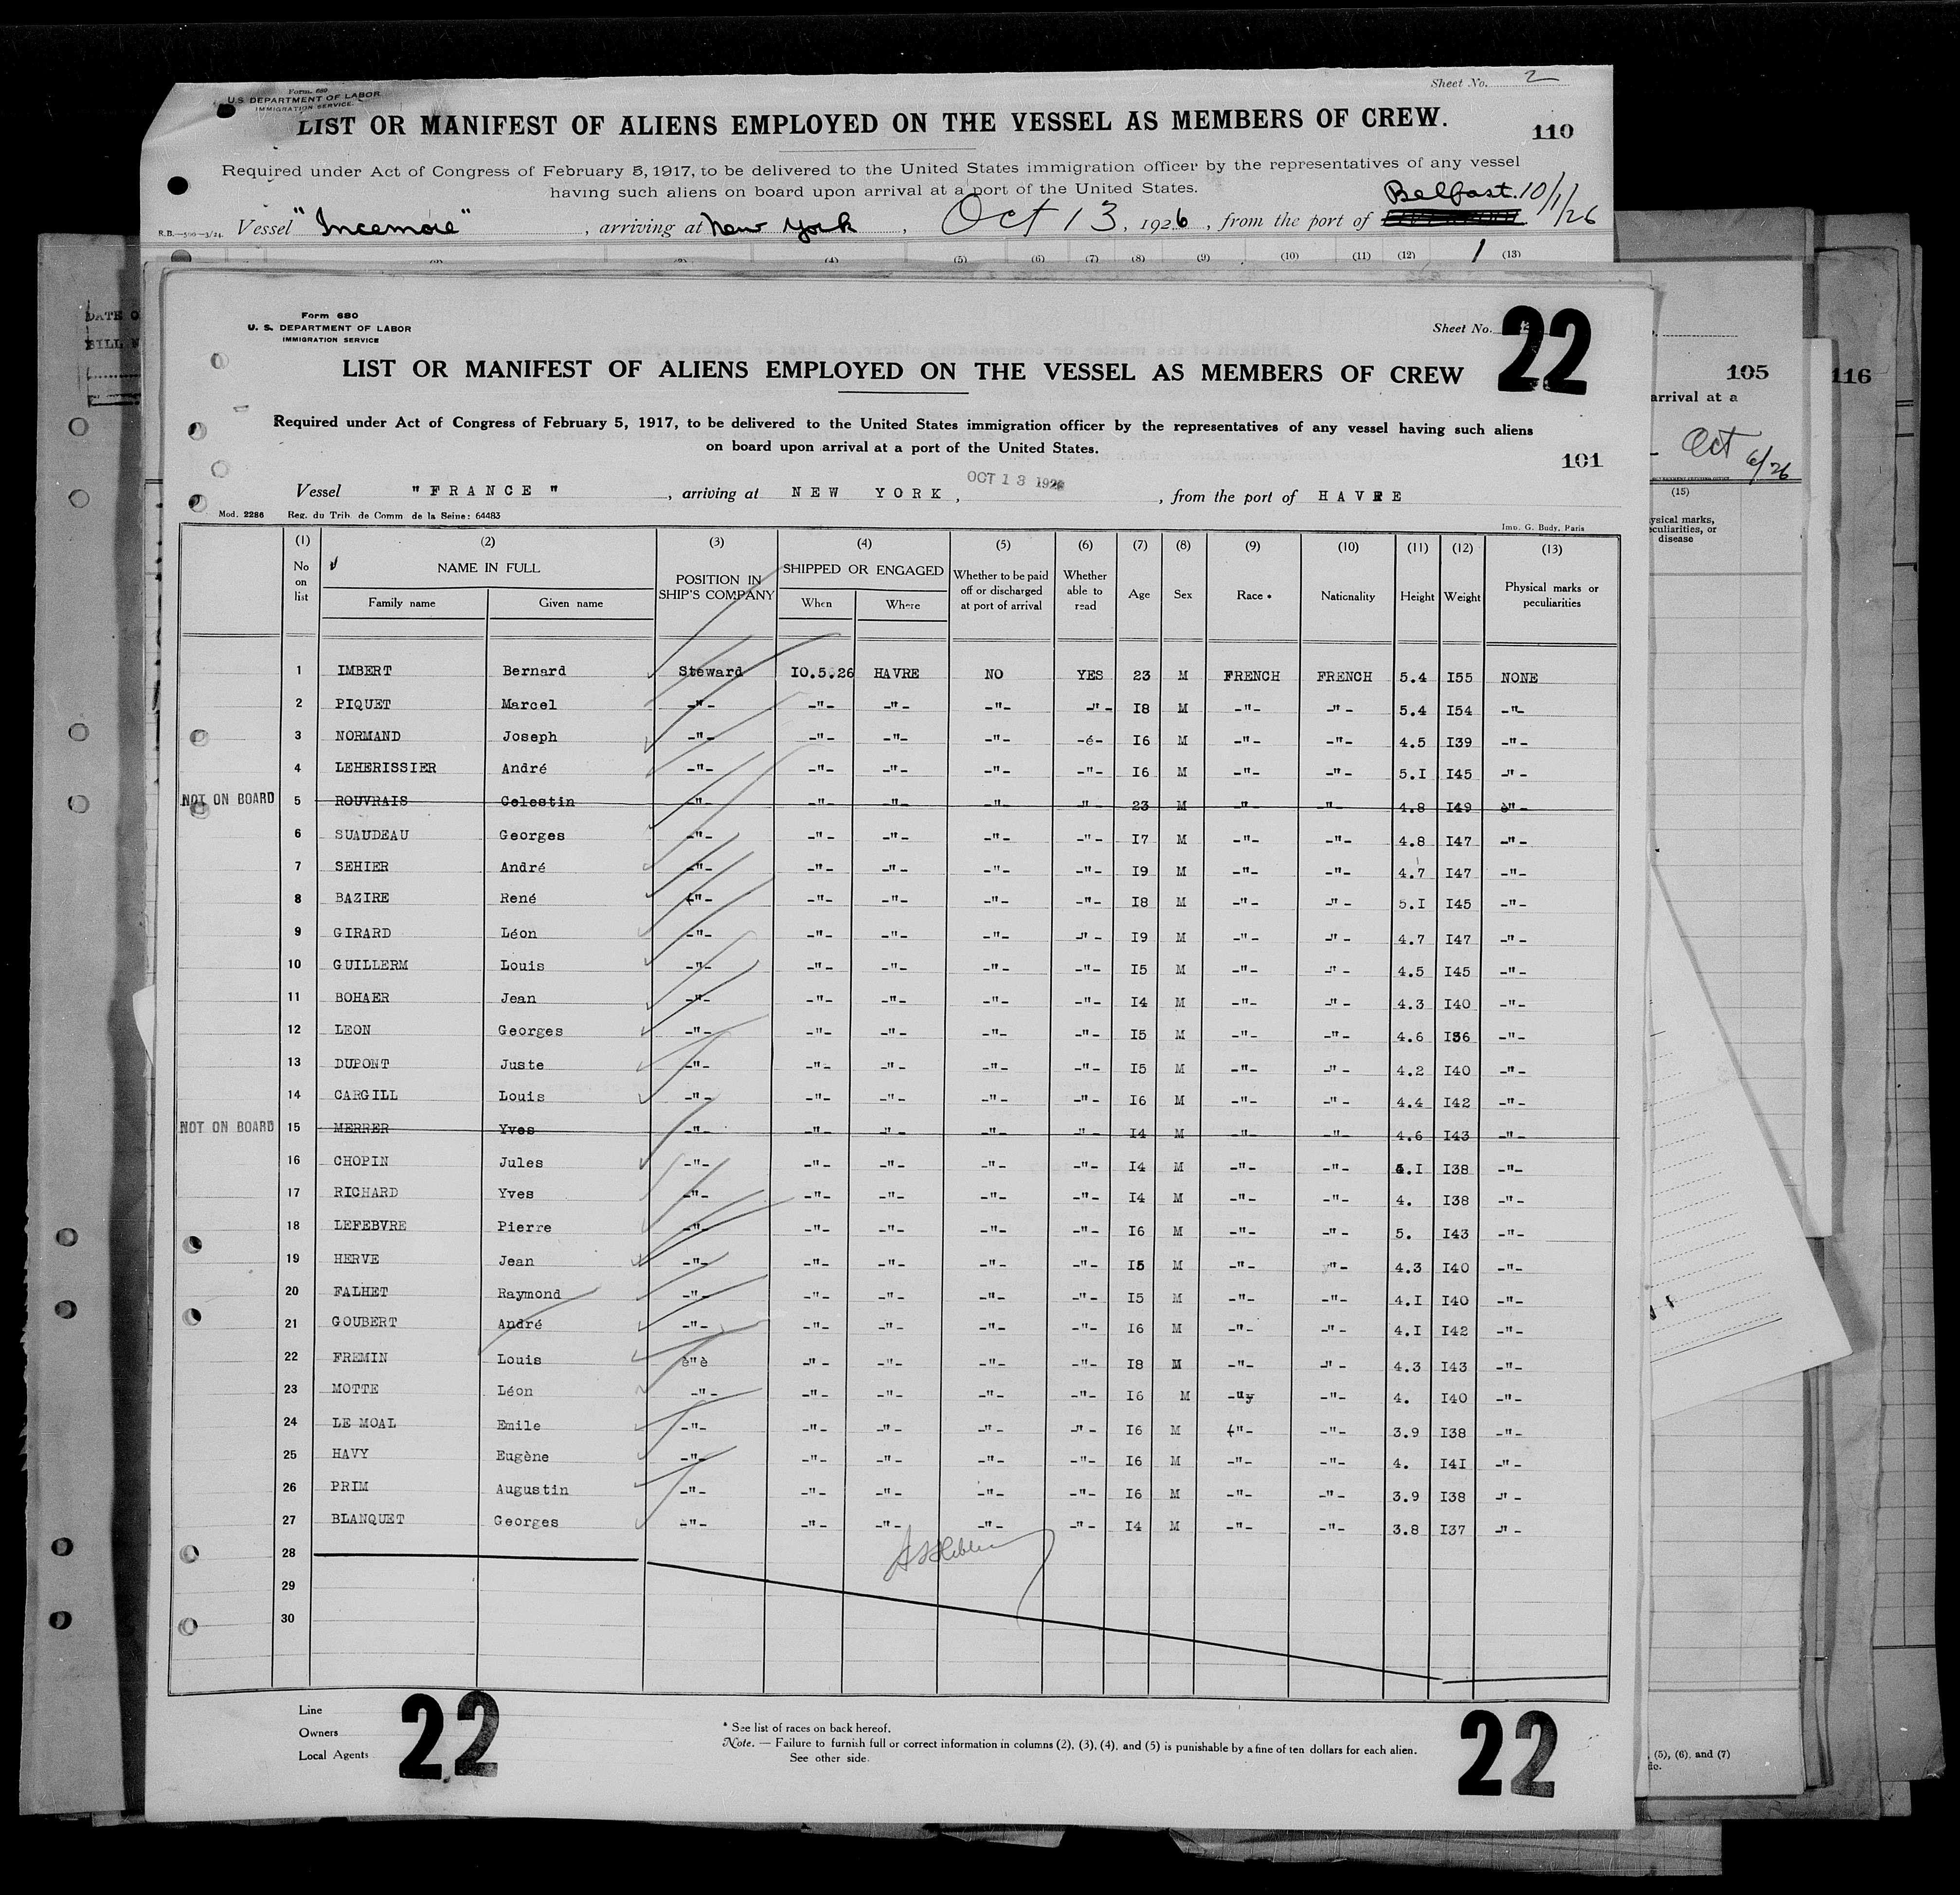 Form 680
U.S. DEPARTMENT OF LABOR
IMMIGRATION SERVICE
Sheet No. 2
LIST OR MANIFEST OF ALIENS EMPLOYED ON THE VESSEL AS MEMBERS OF CREW.
110
Required under Act of Congress of February 5, 1917, to be delivered to the United States immigration officer by the representatives of any vessel
having such aliens on board upon arrival at a port of the United States.
Belfast 10/1/26
R.B.—500—3/24. Vessel "Incemore", arriving at New York, Oct 13, 1926, from the port of
(4) (5) (6) (7) (8) (9) (10) (11) (12) 1 (13)
DATE O
BILL N
105
116
arrival at a
Oct 6/26
(15)
ysical marks,
culiarities, or
disease
(5), (6), and (7)
Form 680
U. S. DEPARTMENT OF LABOR
IMMIGRATION SERVICE
Sheet No. 22
LIST OR MANIFEST OF ALIENS EMPLOYED ON THE VESSEL AS MEMBERS OF CREW
Required under Act of Congress of February 5, 1917, to be delivered to the United States immigration officer by the representatives of any vessel having such aliens
on board upon arrival at a port of the United States.
101
Vessel "FRANCE", arriving at NEW YORK, OCT 13 1926, from the port of HAVRE
Mod. 2286 Reg. du Trib. de Comm. de la Seine: 64483
Imp. G. Budy, Paris
(1) (2) (3) (4) (5) (6) (7) (8) (9) (10) (11) (12) (13)
No on list NAME IN FULL Family name Given name POSITION IN SHIP'S COMPANY SHIPPED OR ENGAGED When Where Whether to be paid off or discharged at port of arrival Whether able to read Age Sex Race * Nationality Height Weight Physical marks or peculiarities
1 IMBERT Bernard Steward I0.5.26 HAVRE NO YES 23 M FRENCH FRENCH 5.4 I55 NONE
2 PIQUET Marcel -"- -"- -"- -"- -"- I8 M -"- -"- 5.4 I54 -"-
3 NORMAND Joseph -"- -"- -"- -"- -é- I6 M -"- -"- 4.5 I39 -"-
4 LEHERISSIER André -"- -"- -"- -"- -"- I6 M -"- -"- 5.I I45 -"-
NOT ON BOARD 5 ROUVRAIS Celestin -"- -"- -"- -"- -"- 23 M -"- -"- 4.8 I49 è"-
6 SUAUDEAU Georges -"- -"- -"- -"- -"- I7 M -"- -"- 4.8 I47 -"-
7 SEHIER André -"- -"- -"- -"- -"- I9 M -"- -"- 4.7 I47 -"-
8 BAZIRE René ("- -"- -"- -"- -"- I8 M -"- -"- 5.I I45 -"-
9 GIRARD Léon -"- -"- -"- -"- -"- I9 M -"- -"- 4.7 I47 -"-
10 GUILLERM Louis -"- -"- -"- -"- -"- I5 M -"- -"- 4.5 I45 -"-
11 BOHAER Jean -"- -"- -"- -"- -"- I4 M -"- -"- 4.3 I40 -"-
12 LEON Georges -"- -"- -"- -"- -"- I5 M -"- -"- 4.6 I36 -"-
13 DUPONT Juste -"- -"- -"- -"- -"- I5 M -"- -"- 4.2 I40 -"-
14 CARGILL Louis -"- -"- -"- -"- -"- I6 M -"- -"- 4.4 I42 -"-
NOT ON BOARD 15 MERRER Yves -"- -"- -"- -"- -"- I4 M -"- -"- 4.6 I43 -"-
16 CHOPIN Jules -"- -"- -"- -"- -"- I4 M -"- -"- 4.I I38 -"-
17 RICHARD Yves -"- -"- -"- -"- -"- I4 M -"- -"- 4. I38 -"-
18 LEFEBVRE Pierre -"- -"- -"- -"- -"- I6 M -"- -"- 5. I43 -"-
19 HERVE Jean -"- -"- -"- -"- -"- I5 M -"- -"- 4.3 I40 -"-
20 FALHET Raymond -"- -"- -"- -"- -"- I5 M -"- -"- 4.I I40 -"-
21 GOUBERT André -"- -"- -"- -"- -"- I6 M -"- -"- 4.I I42 -"-
22 FREMIN Louis è"è -"- -"- -"- -"- I8 M -"- -"- 4.3 I43 -"-
23 MOTTE Léon -"- -"- -"- -"- -"- I6 M -"y -"- 4. I40 -"-
24 LE MOAL Emile -"- -"- -"- -"- -"- I6 M ("- -"- 3.9 I38 -"-
25 HAVY Eugène -"- -"- -"- -"- -"- I6 M -"- -"- 4. I4I -"-
26 PRIM Augustin -"- -"- -"- -"- -"- I6 M -"- -"- 3.9 I38 -"-
27 BLANQUET Georges -"- -"- -"- -"- -"- I4 M -"- -"- 3.8 I37 -"-
28
29
30
Line
Owners
Local Agents
22
* See list of races on back hereof.
Note. — Failure to furnish full or correct information in columns (2), (3), (4), and (5) is punishable by a fine of ten dollars for each alien.
See other side.
22